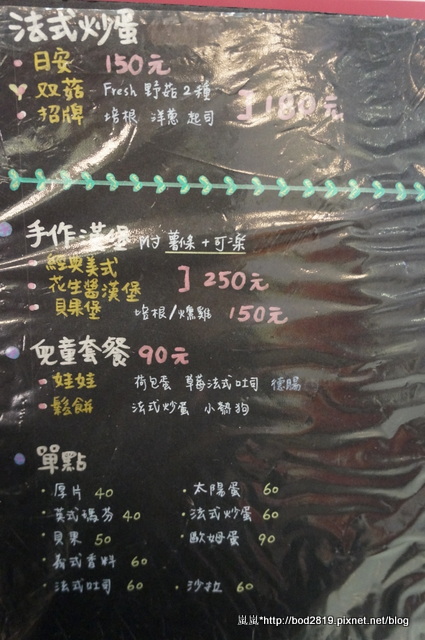 法式炒蛋
日安 150元
双菇 Fresh 野菇2種
招牌 培根 洋蔥 起司 ] 180元
手作漢堡 附 薯條+可樂
經典美式
花生醬漢堡 ] 250元
貝果堡 培根/燻雞 150元
兒童套餐 90元
娃娃 荷包蛋 草莓法式吐司 德腸
鬆餅 法式炒蛋 小熱狗
單點
·厚片 40 ·太陽蛋 60
·英式瑪芬 40 ·法式炒蛋 60
·貝果 50 ·歐姆蛋 90
·義式香料 60
·法式吐司 60 ·沙拉 60
嵐嵐*http://bod2819.pixnet.net/blog